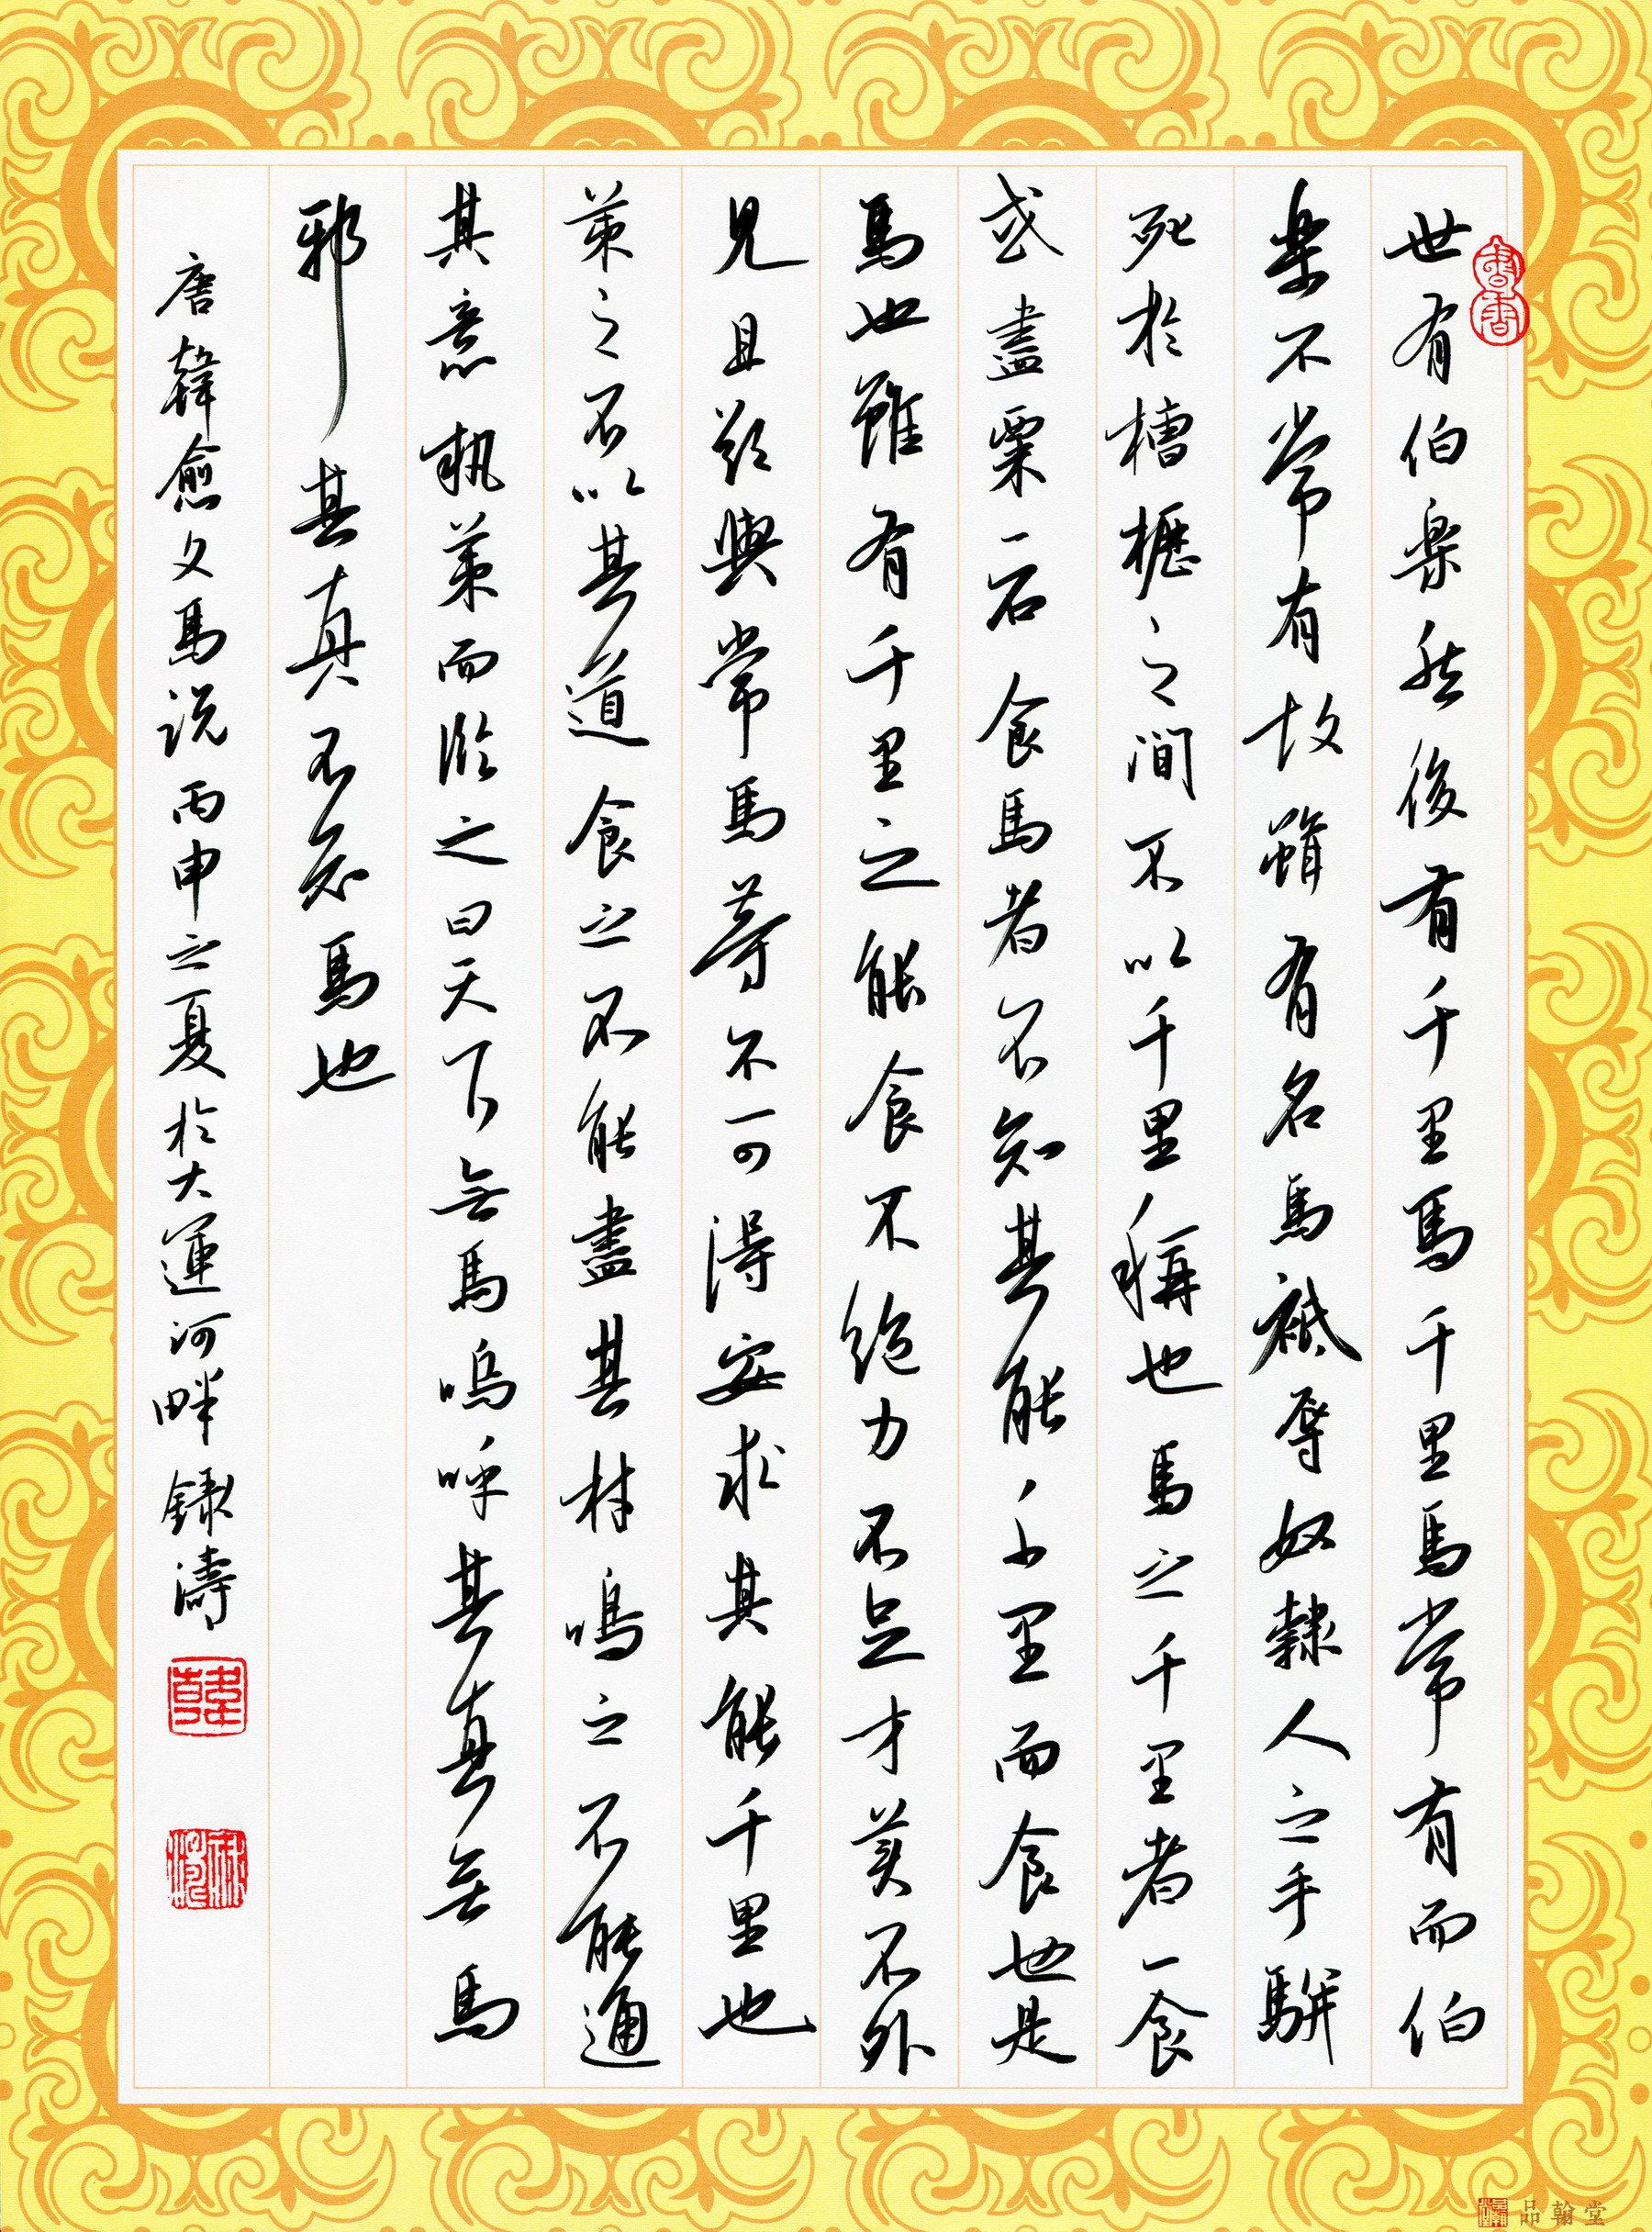 書香
世有伯樂然後有千里馬千里馬常有而伯
樂不常有故雖有名馬祇辱奴隸人之手駢
死於槽櫪之間不以千里稱也馬之千里者一食
或盡粟一石食馬者不知其能千里而食也是
馬也雖有千里之能食不飽力不足才美不外
見且欲與常馬等不可得安求其能千里也
策之不以其道食之不能盡其材鳴之不能通
其意執策而臨之曰天下無馬嗚呼其真無馬
邪其真不知馬也
唐韓愈文馬説丙申之夏於大運河畔 濤
韓
品翰堂